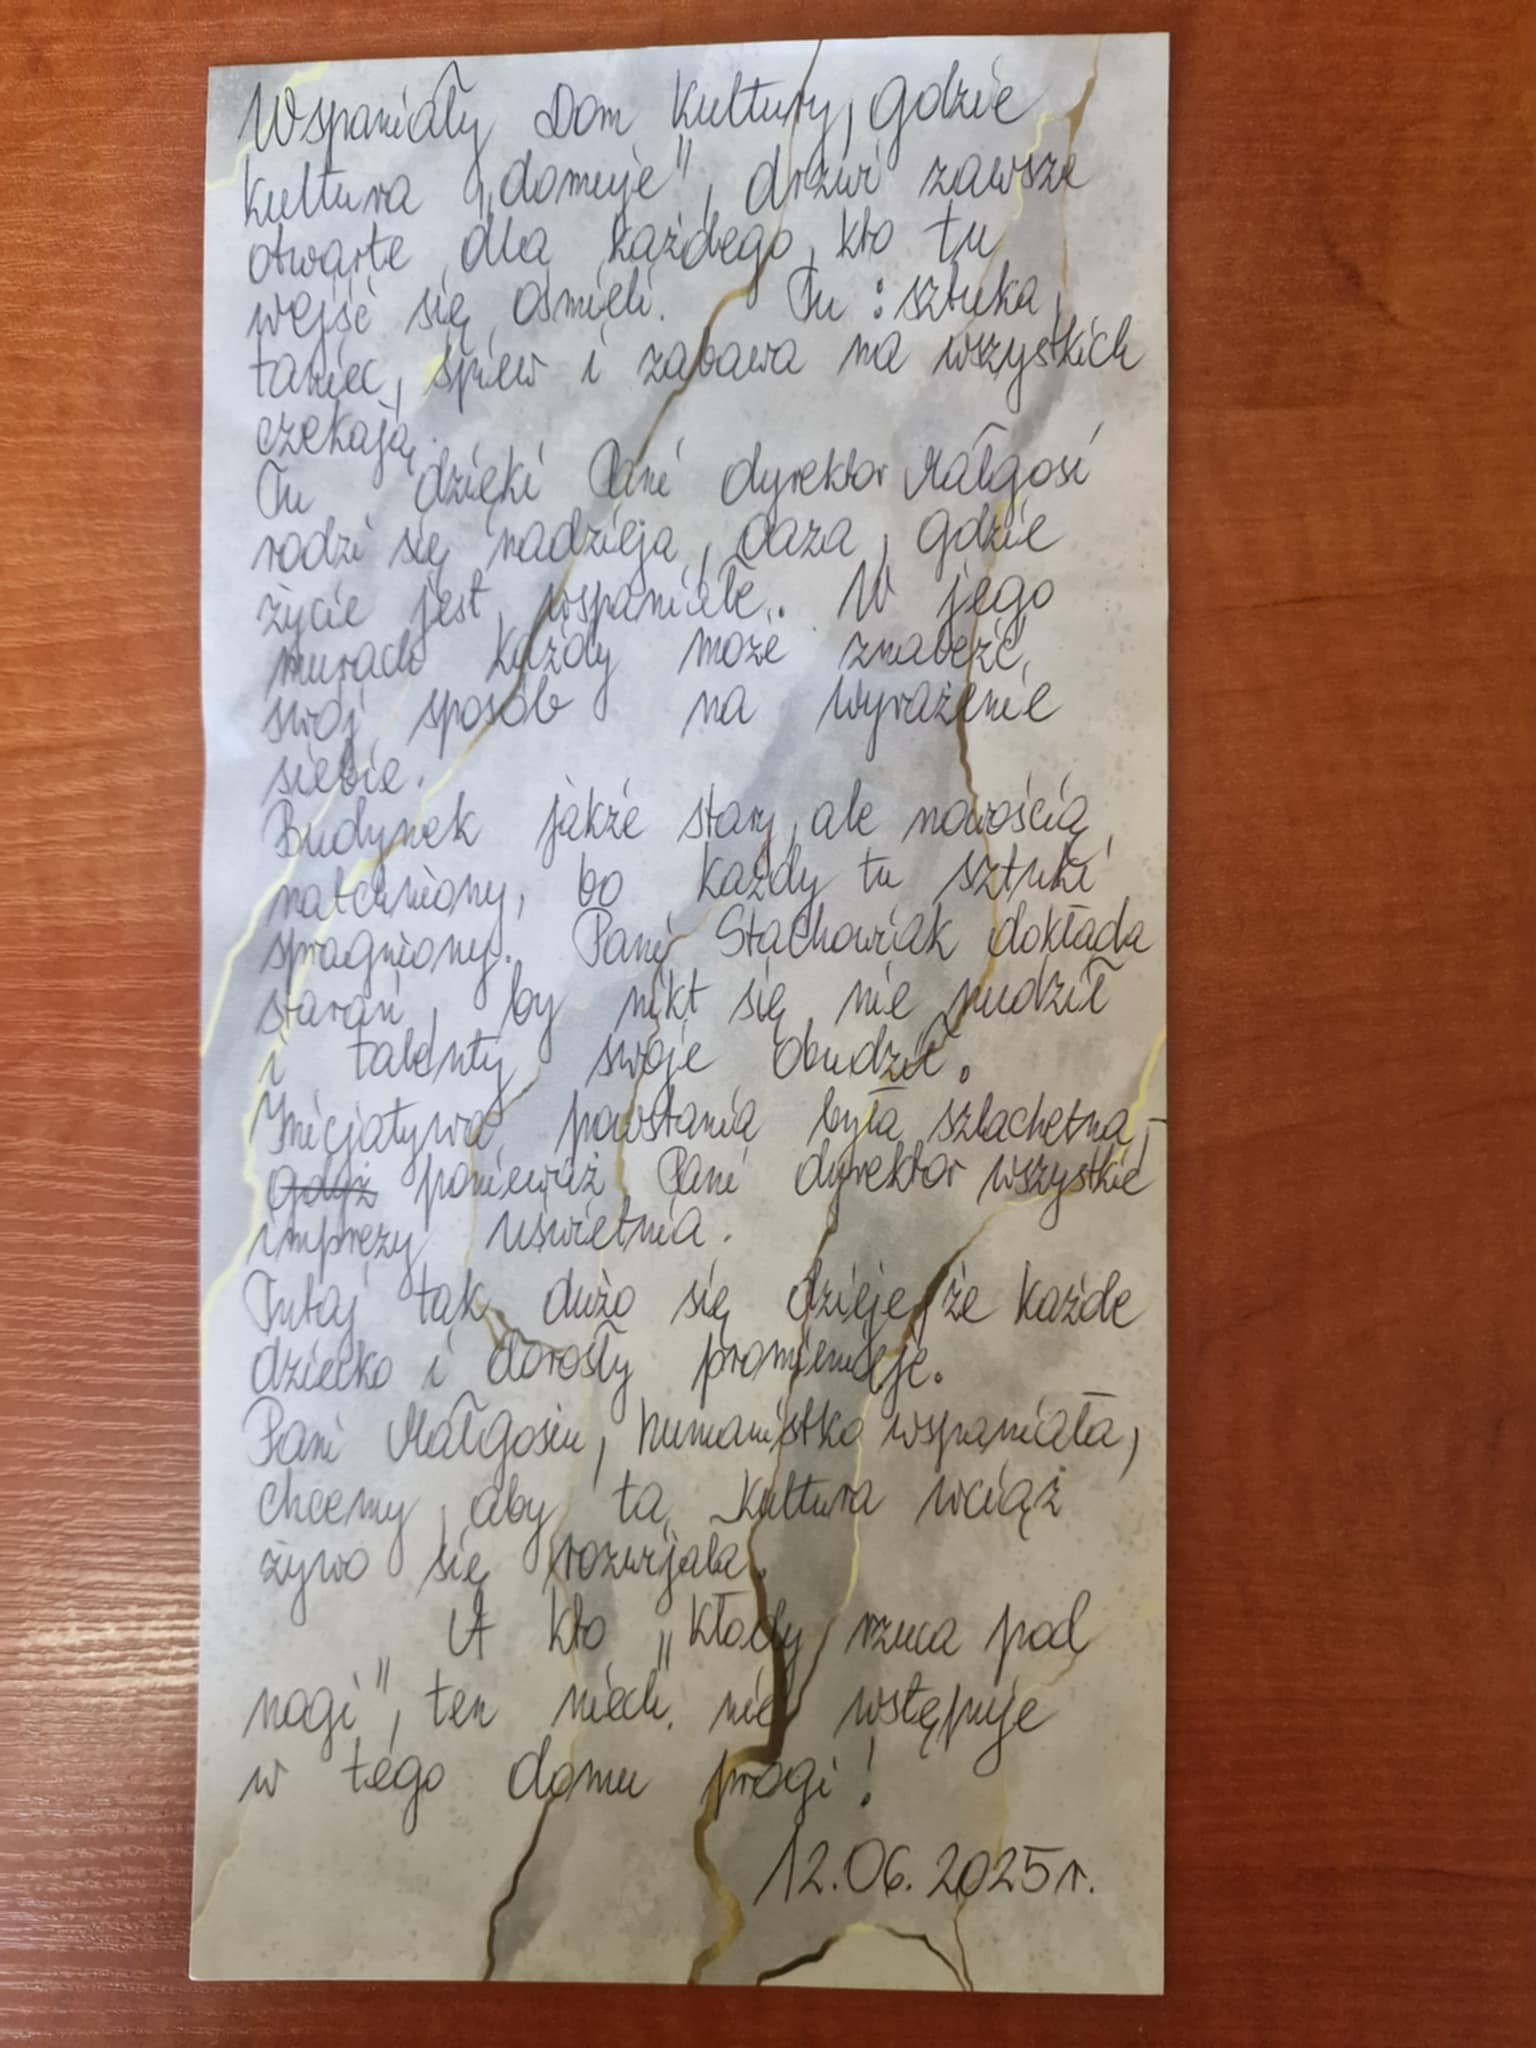 Wspaniały Dom Kultury, gdzie
kultura „domuje", drzwi zawsze
otwarte dla każdego, kto tu
wejść się ośmieli. Tu : sztuka,
taniec, śpiew i zabawa na wszystkich
czekają.
Tu dzięki Pani dyrektor Małgosi
rodzi się nadzieja, oaza, gdzie
życie jest wspaniałe. W jego
murach każdy może znaleźć
swój sposób na wyrażenie
siebie.
Budynek jakże stary, ale nowością
natchniony, bo każdy tu sztuki
spragniony. Pani Stachowiak dokłada
starań, by nikt się nie nudził
i talenty swoje obudził.
Inicjatywa powstania była szlachetna,
gdyż ponieważ Pani dyrektor wszystkie
imprezy uświetnia.
Tutaj tak dużo się dzieje, że każde
dziecko i dorosły promienieje.
Pani Małgosiu, humanistko wspaniała,
chcemy, aby ta kultura wciąż
żywo się rozwijała.
A kto „kłody rzuca pod
nogi", ten niech nie wstępuje
w tego domu progi!
12.06.2025r.